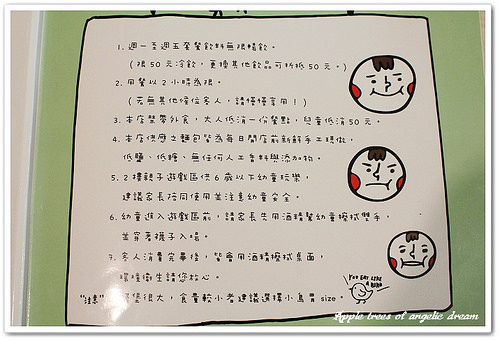 1. 週一至週五套餐飲料無限暢飲。
(限50元冷飲，更換其他飲品可折抵50元。)
2. 用餐以2小時為限。
(若無其他候位客人，請慢慢享用！)
3. 本店禁帶外食，大人低消一份餐點，兒童低消50元。
4. 本店供應之麵包皆為每日開店前新鮮手工現做，
低鹽、低糖、無任何人工香料與添加物。
5. 2樓親子遊戲區供6歲以下幼童玩樂，
建議家長陪同使用並注意幼童安全。
6. 幼童進入遊戲區前，請家長先用酒精幫幼童擦拭雙手，
並穿著襪子入場。
7. 客人消費完畢後，皆會用酒精擦拭桌面，
環境衛生請您放心。
YOU EAT LIKE
A BIRD
"注意" 堡很大，食量較小者建議選擇小鳥胃size。
Apple trees of angelic dream